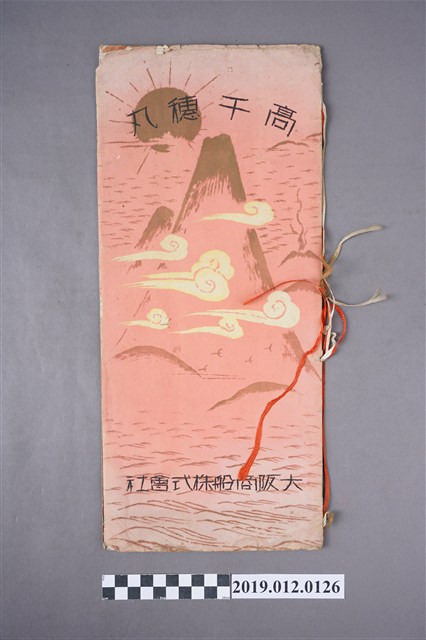 高千穗丸
大阪商船株式會社
2019.012.0126